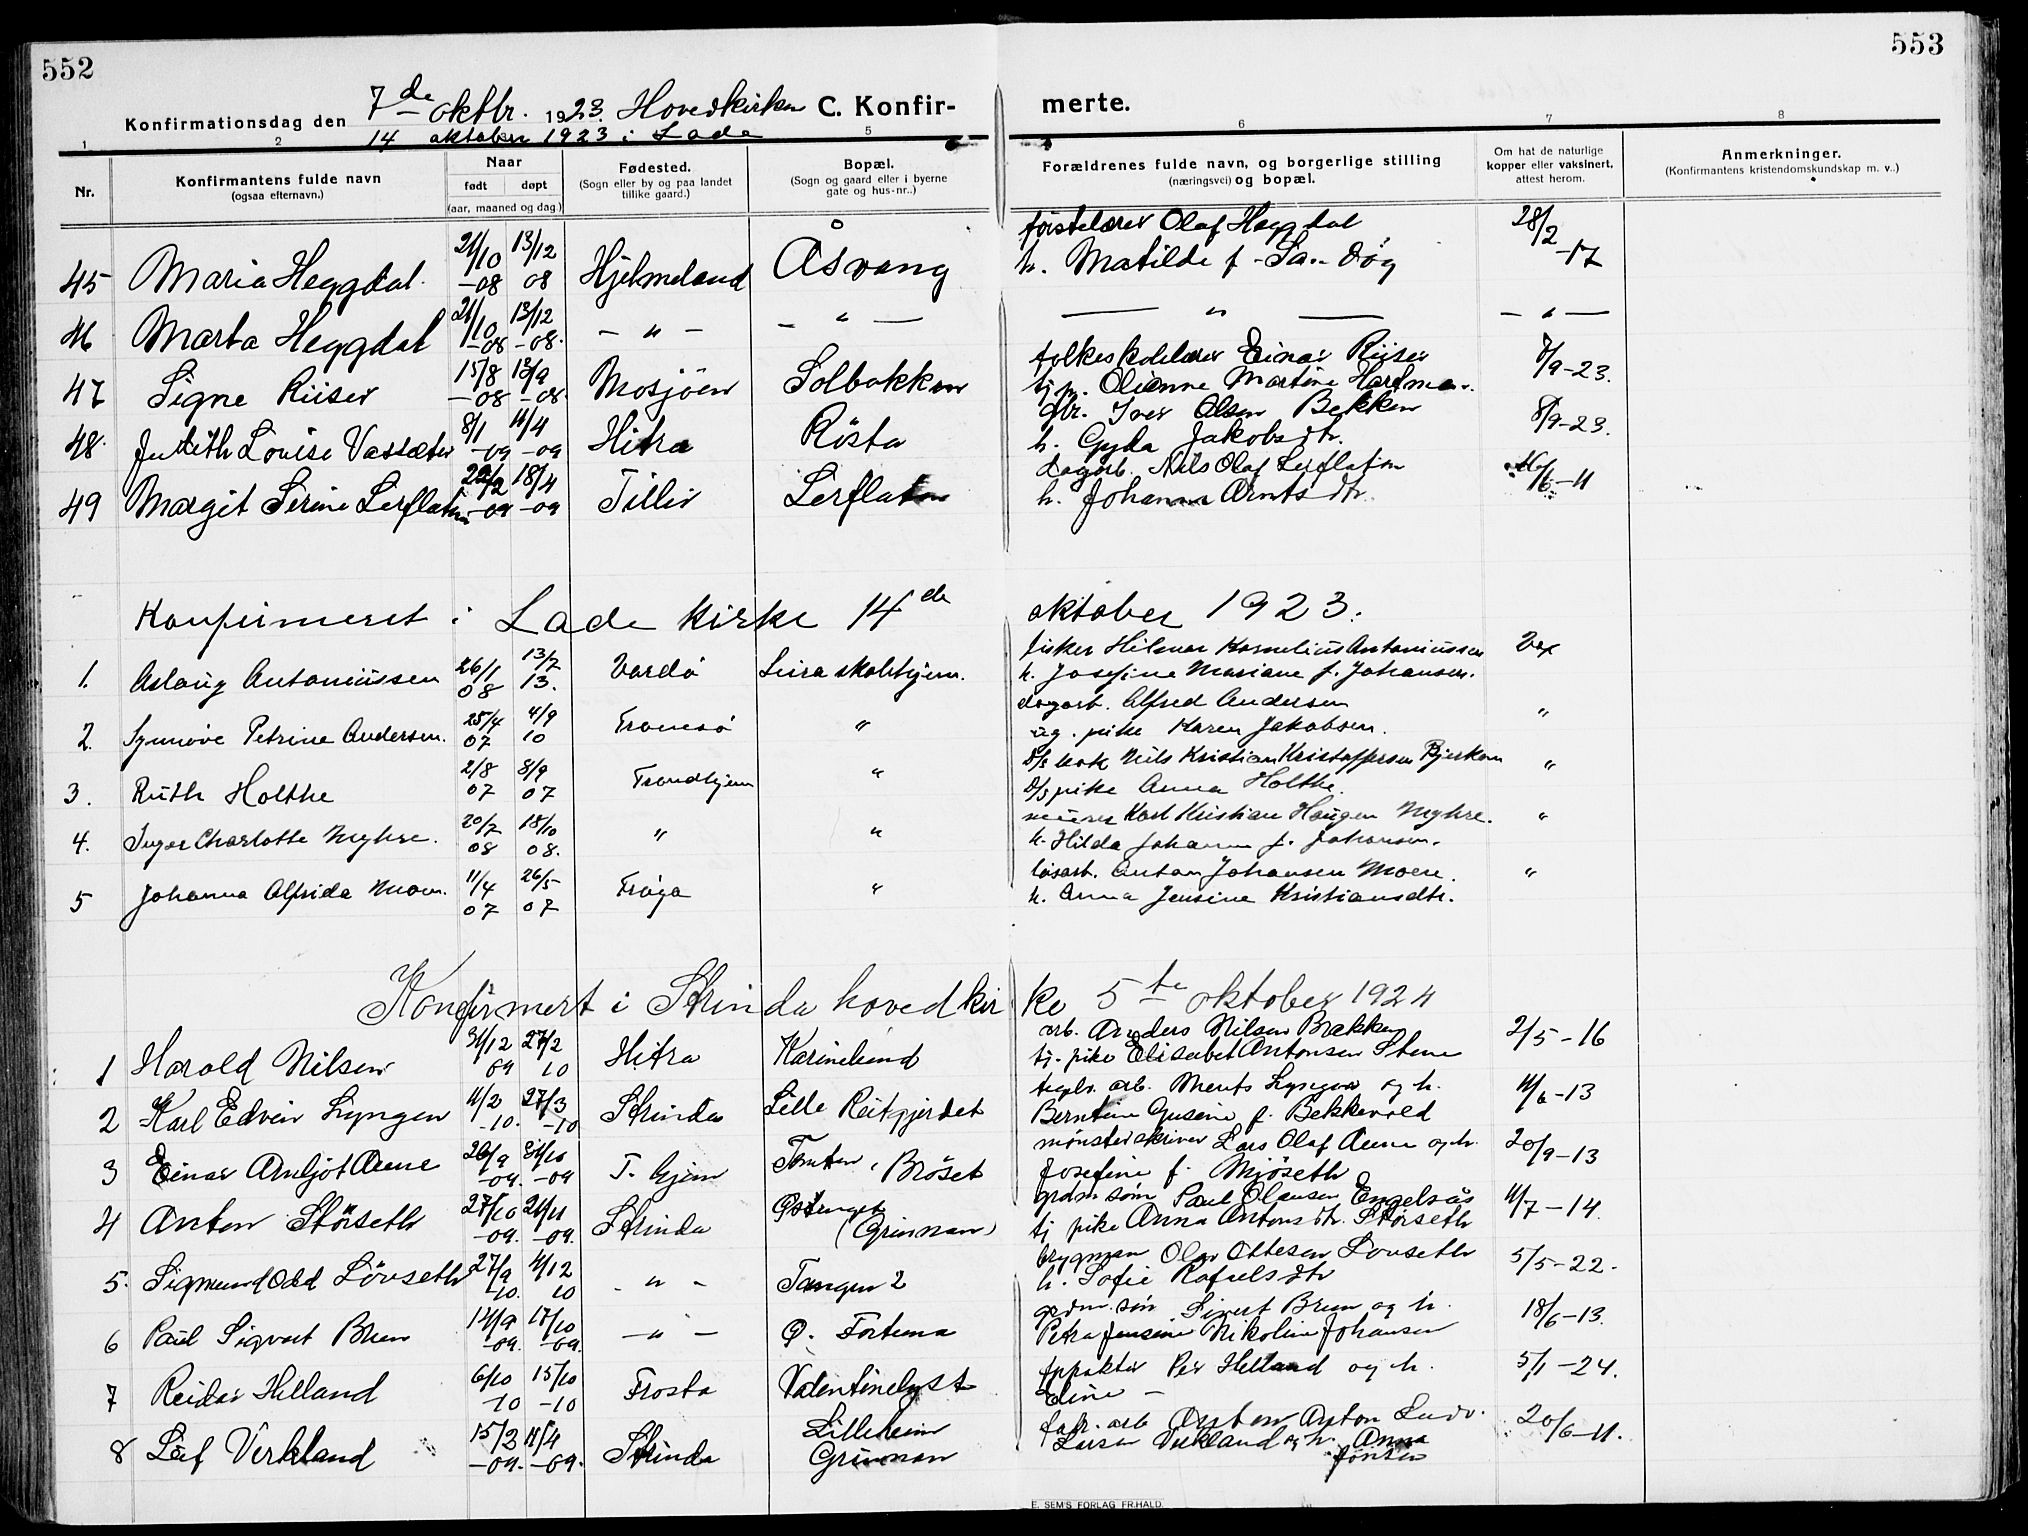 552
553
7de oktbr. 1923. Hovedkirken
Konfirmationsdag den
14 oktober 1923 i Lade
C. Konfir-
merte.
1 2 5 6 7 8
Nr.
Konfirmantens fulde navn
(ogsaa efternavn.)
Naar
født døpt
(aar, maaned og dag.)
Fødested.
(Sogn eller by og paa landet
tillike gaard.)
Bopæl.
(Sogn og gaard eller i byerne
gate og hus-nr..)
Forældrenes fulde navn, og borgerlige stilling
(næringsvei) og bopæl.
Om hat de naturlige
kopper eller vaksinert,
attest herom.
Anmerkninger.
(Konfirmantens kristendomskundskap m. v..)
førstelærer Olaf Heggdal 28/2
45 Maria Heggdal. 21/10 -08 13/12 08 Hjelmeland Åsvang h. Matilde f. -17
46 Marta Heggdal 21/10 -08 13/12 -08. - " - - " - - " - - " -
folkeskolelærer Einar Riiser
47 Signe Riiser 15/8 -08 13/9 -08 Mosjöen Solbakken tj.p. Olianne Martine Hartma 8/9-23.
gbr. Iver Olsen Bekken
48. Judith Louise Vassæter 8/1 -09 11/4 -09 Hitra Rösta h. Gyda Jakobsdtr. 8/9-23.
dagarb. Nils Olaf Lerflaten
49 Margit Serine Lerflaten -09 18/4 -09 Tiller Lerflaten h. Johanna Arntsdtr. -11
Konfirmeret i Lade kirke 14de oktober 1923.
fisker Hilmar Kornelius Antoniussen Vax
1. Aslaug Antoniussen 26/1 08 13/7 13. Vardö Leira skolehjem. h. Josefine Mariane f. Johansen.
dagarb. Alfred Andersen
2. Synnöve Petrine Andersen. 25/4 07 4/9 10 Tromsö " ug. pike Karen Jakobsen. "
D/s kok Nils Kristian Kristoffersen Bjerkan
3. Ruth Holthe 2/8 07 8/9 07 Trondhjem " D/s pike Anna Holthe. "
murer Karl Kristian Haugen Myhre.
4. Inger Charlotte Myhre. 20/7 08 18/10 08. " " h. Hilda Johanna f. Johansen. "
løsarb. Anton Johansen Moen.
5 Johanna Alfrida Moen. 11/4 07 26/5 07 Fröya " h. Anna Jensine Kristiansdtr. "
Konfirmert i Strinda hovedkirke 5te oktober 1924
arb. Anders Nilsen Bækken
1 Harald Nilsen 31/12 09 27/2 10 Hitra Karinelund tj. pike Elisabet Antonsen Stene 2/5-16
teglv. arb. Ments Lyngen og h.
2 Karl Edvin Lyngen 11/2 -10. 27/3 -10 Strinda Lille Reitgjerdet Berntine Gusine f. Bekkevold 11/6-13
mønsterskriver Lars Olaf Aune og h.
3 Einar Arnljot Aune 26/9 -09. 31/10 -09 T. hjem Tomten, Bröset Josefine f. Mjöseth 20/9-13
grdm. søn Paul Olausen Engelsås
4 Anton Störseth 27/10 -09. 21/11 -09. Strinda (Grinnan) tj pike Anna Antonsdtr. Störseth 11/7-14.
brygman Olav Ottesen Lövseth
5. Sigmund Odd Lövseth 27/9 -10. 4/12 10 - " - Tangen 2 h. Sofie Rafaelsdtr 5/5-22.
grdm. sön Sivert Bruen og h.
6 Paul Sigvart Bruen 14/9 -09. 17/10 -09. - " - Ö. Fortuna Petra Jensine Nikoline Johansen 18/6-13.
7 Reidar Helland 6/10 -10 15/10 -10 Frosta Valentinelyst inspektør Per Helland og h. 5/1-24.
Eline -
fabr. arb
8 Leif Verkland 15/2 -09. 11/4 -09. Strinda Lilleheim Grinnan Larsen Verkland og h. Anna Jonsen 20/6-11.
E. SEM'S FORLAG FR.HALD.